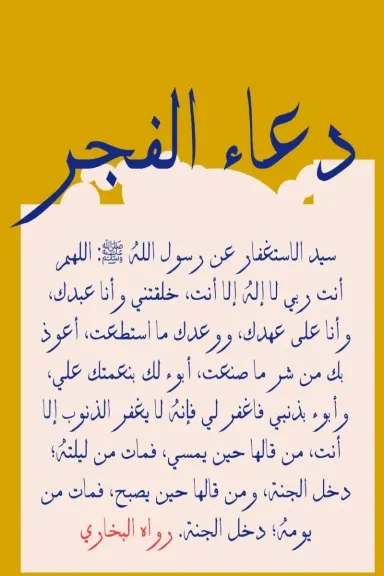 دعاء الفجر
سيد الاستغفار عن رسول الله ﷺ: اللهم
أنت ربي لا إله إلا أنت، خلقتني وأنا عبدك،
وأنا على عهدك، ووعدك ما استطعت، أعوذ
بك من شر ما صنعت، أبوء لك بنعمتك علي،
وأبوء بذنبي فاغفر لي فإنه لا يغفر الذنوب إلا
أنت، من قالها حين يمسي، فمات من ليلته؛
دخل الجنة، ومن قالها حين يصبح، فمات من
يومه؛ دخل الجنة. رواه البخاري